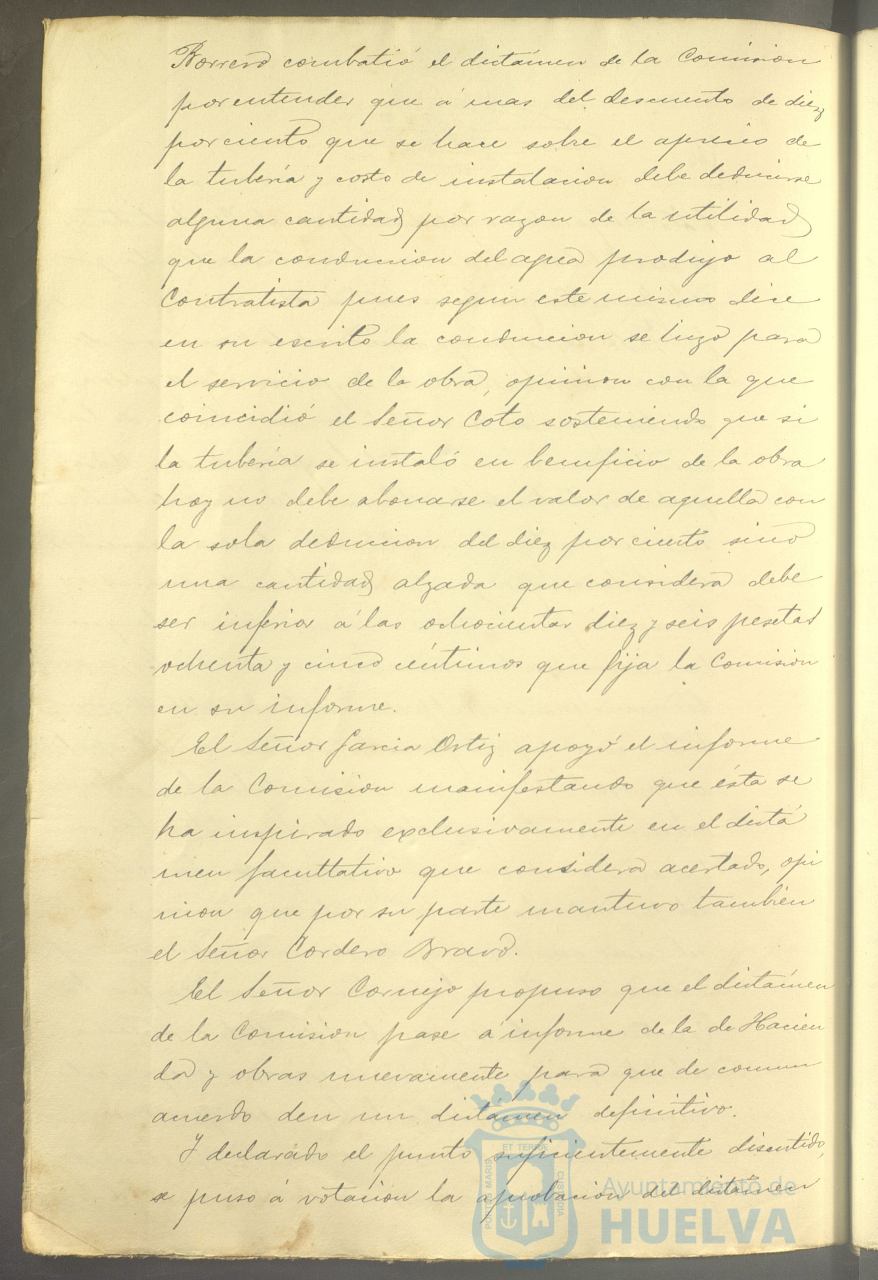 Borrero combatió el dictámen de la Comision
por entender que á mas del descuento de diez
por ciento que se hace sobre el aprecio de
la tubería y costo de instalacion debe deducirse
alguna cantidad por razon de la utilidad
que la conduccion del agua produjo al
Contratista pues segun este mismo dice
en su escrito la conduccion se hizo para
el servicio de la obra, opinion con la que
coincidió el Señor Coto sosteniendo que si
la tubería se instaló en beneficio de la obra
hoy no debe abonarse el valor de aquella con
la sola deduccion del diez por ciento sino
una cantidad alzada que considera debe
ser inferior á las ochocientas diez y seis pesetas
ochenta y cinco céntimos que fija la Comision
en su informe.
El Señor Garcia Ortiz apoyó el informe
de la Comision manifestando que ésta se
ha inspirado exclusivamente en el dictá
men facultativo que considera acertado, opi
nion que por su parte mantuvo tambien
el Señor Cordero Bravo.
El Señor Cornejo propuso que el dictámen
de la Comision pase á informe de la de Hacien
da y obras nuevamente para que de comun
acuerdo den un dictámen definitivo.
Y declarado el punto suficientemente discutido,
se puso á votacion la aprobacion del dictámen
PORTUS MARIS
ET TERRA
CUSTODIA
Ayuntamiento de
HUELVA